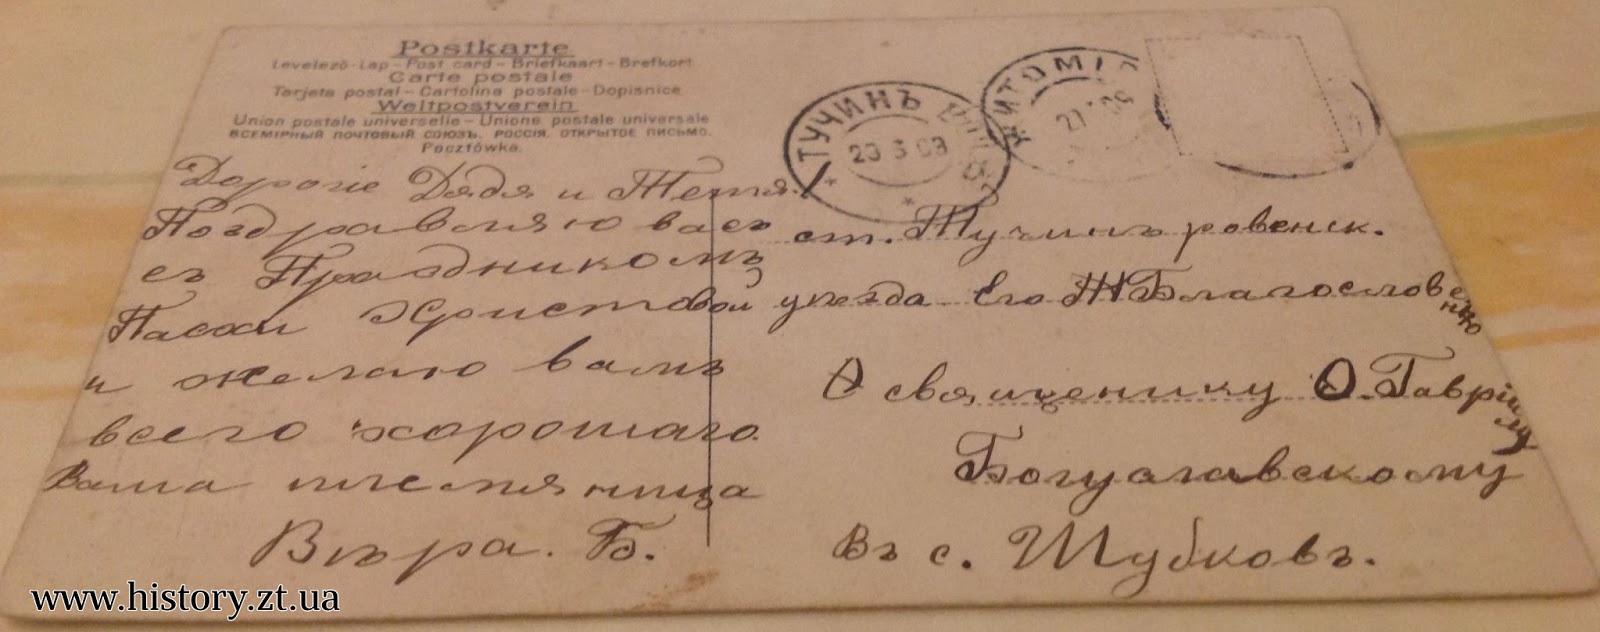 Postkarte
Levelezö-Lap - Post card - Briefkaart - Brefkort
Carte postale
Tarjeta postal - Cartolina postale - Dopisnice
Weltpostverein
Union postale universelle - Unione postale universale
ВСЕМІРНЫЙ ПОЧТОВЫЙ СОЮЗЪ. РОССІЯ. ОТКРЫТОЕ ПИСЬМО.
Pocztówka.
Дорогіе Дядя и Тетя!
Поздравляю васъ
съ Праздникомъ
Пасхи Христовой
и желаю вамъ
всего хорошаго
Ваша племянница
Вѣра. Б.
ТУЧИНЪ
23 3 09
ЖИТОМІР
ст. Тучинъ ровенск.
уѣзда Его Благословенію
священику О. Гавріилу
Богуславскому
Въ с. Шубковъ.
www.history.zt.ua